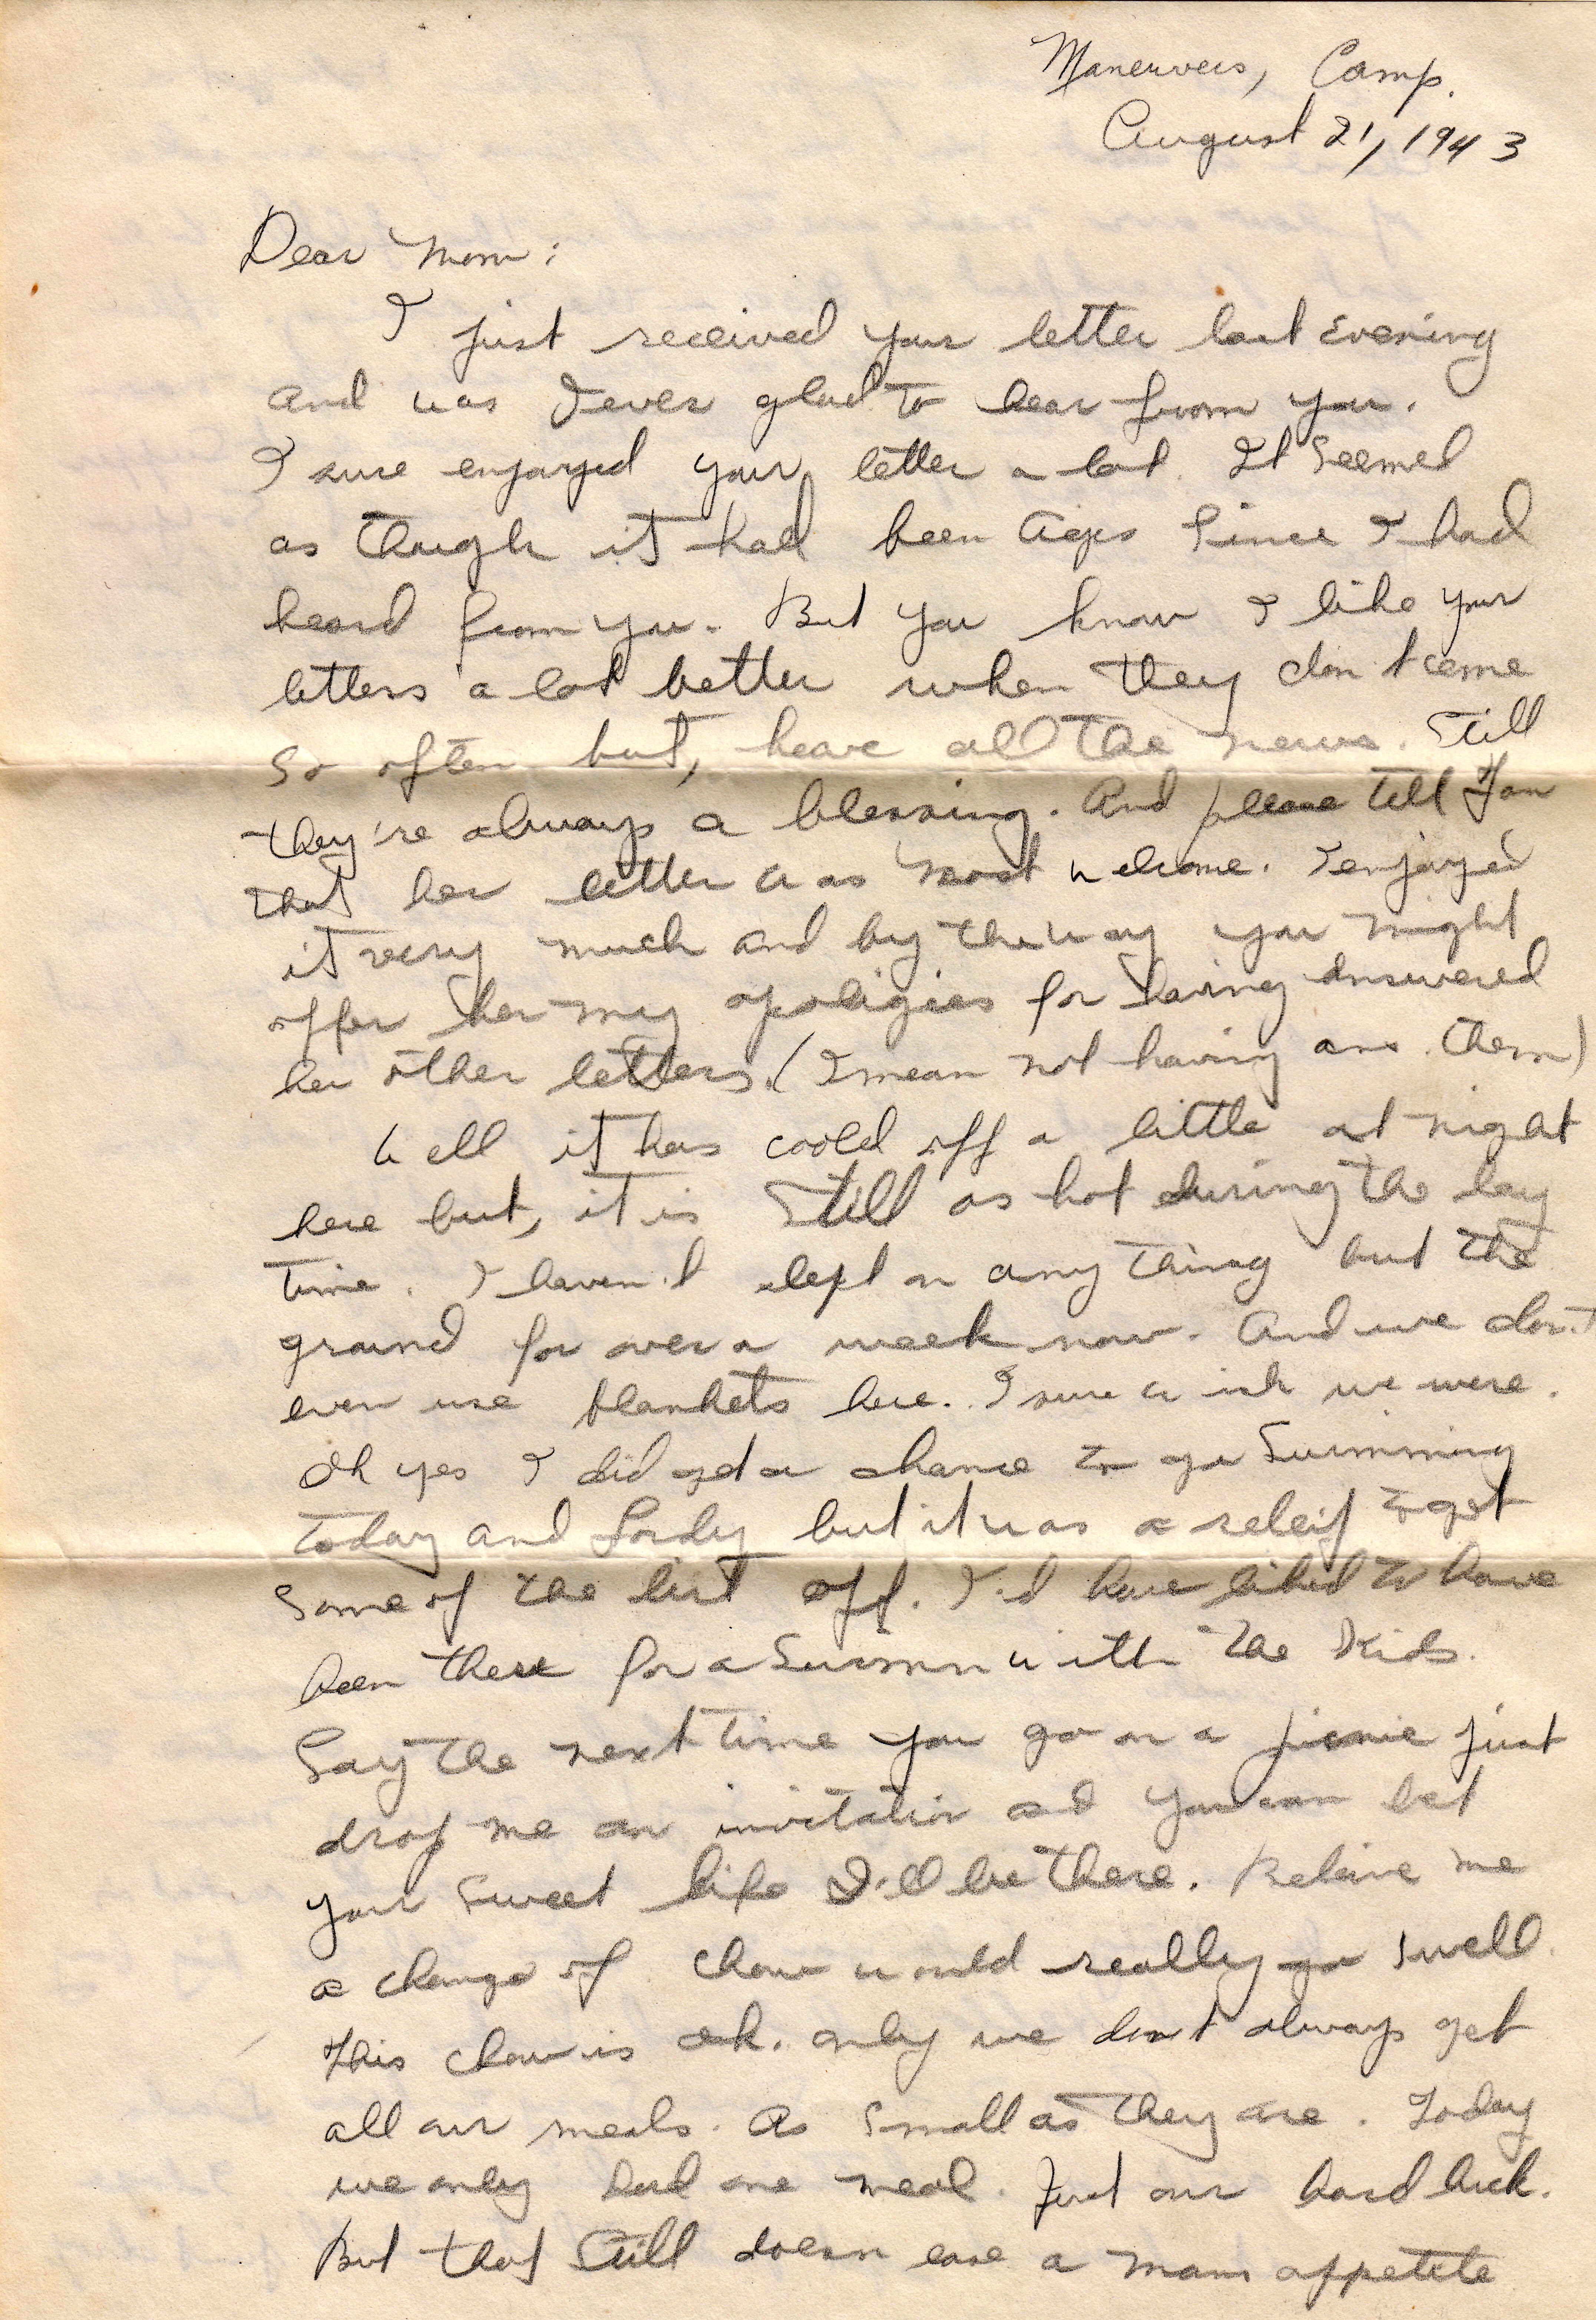 Manervers, Camp.
August 21, 1943
Dear Mom:
I just received your letter last Evening
and was I ever glad to hear from you.
I sure enjoyed your letter a lot. It Seemed
as though it had been Ages Since I had
heard from you. But you know I like your
letters a lot better when they don't come
So often but, have all the news. Still
they're always a blessing. And please tell
that her letter was most welcome. I enjoyed
it very much and by the way you might
offer her my apoligies for having answered
her other letters. (I mean not having ans. them)
Well it has coold off a little at night
here but, it is Still as hot during the day
time. I haven't slept on any thing but the
ground for over a week now. And we don't
even use blankets here. I sure wish we were.
Oh yes I did get a chance to go Swimming
today and Lordy but it was a releif to get
Some of the dirt off. I'd have liked to have
been there for a Swimm with the Kids.
Say the next time you go on a picnic just
drop me an invitation and you can bet
your Sweet life I'll be there. Beleive me
a change of chow would really go Swell.
This chow is ok. only we don't always get
all our meals. As Small as they are. Today
we only had one meal. Just our hard luck.
But that Still doesn ease a mans appetite